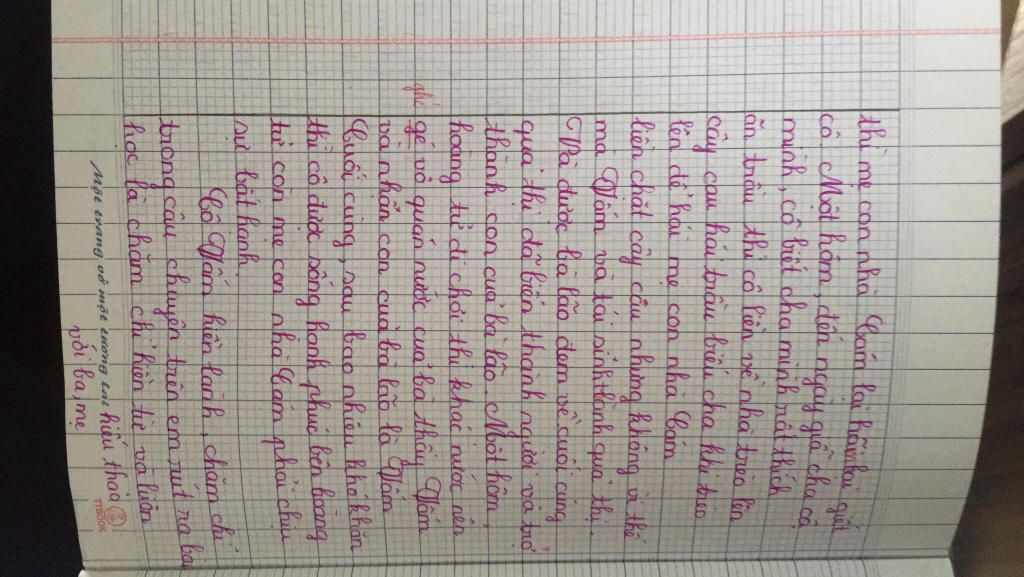 thì mẹ con nhà Cám lại hãm hại giết
cô. Một hôm, đến ngày giỗ cha cô
mình, cô biết cha mình rất thích
ăn trầu thì cô liền về nhà trèo lên
cây cau hái trầu biếu cha khi trèo
lên để hái mẹ con nhà Cám
liền chặt cây cau nhưng không vì thế
mà Tấm và tái sinh thành quả thị.
Và được bà lão đem về cuối cùng
quả thị đã biến thành người và trở
thành con của bà lão. Một hôm,
hoàng tử đi chơi thì khát nước nên
ghé
gé vô quán nước của bà thấy Tấm
và nhận con của bà lão là Tấm
Cuối cùng, sau bao nhiêu khó khăn
thì cô được sống hạnh phúc bên hoàng
tử còn mẹ con nhà Cám phải chịu
sự bất hạnh.
Cô Tấm hiền lành, chăm chỉ
trong câu chuyện trên em rút ra bài
học là chăm chỉ hiền từ và luôn
Một trang vở một tương lai hiếu thảo
với ba, mẹ